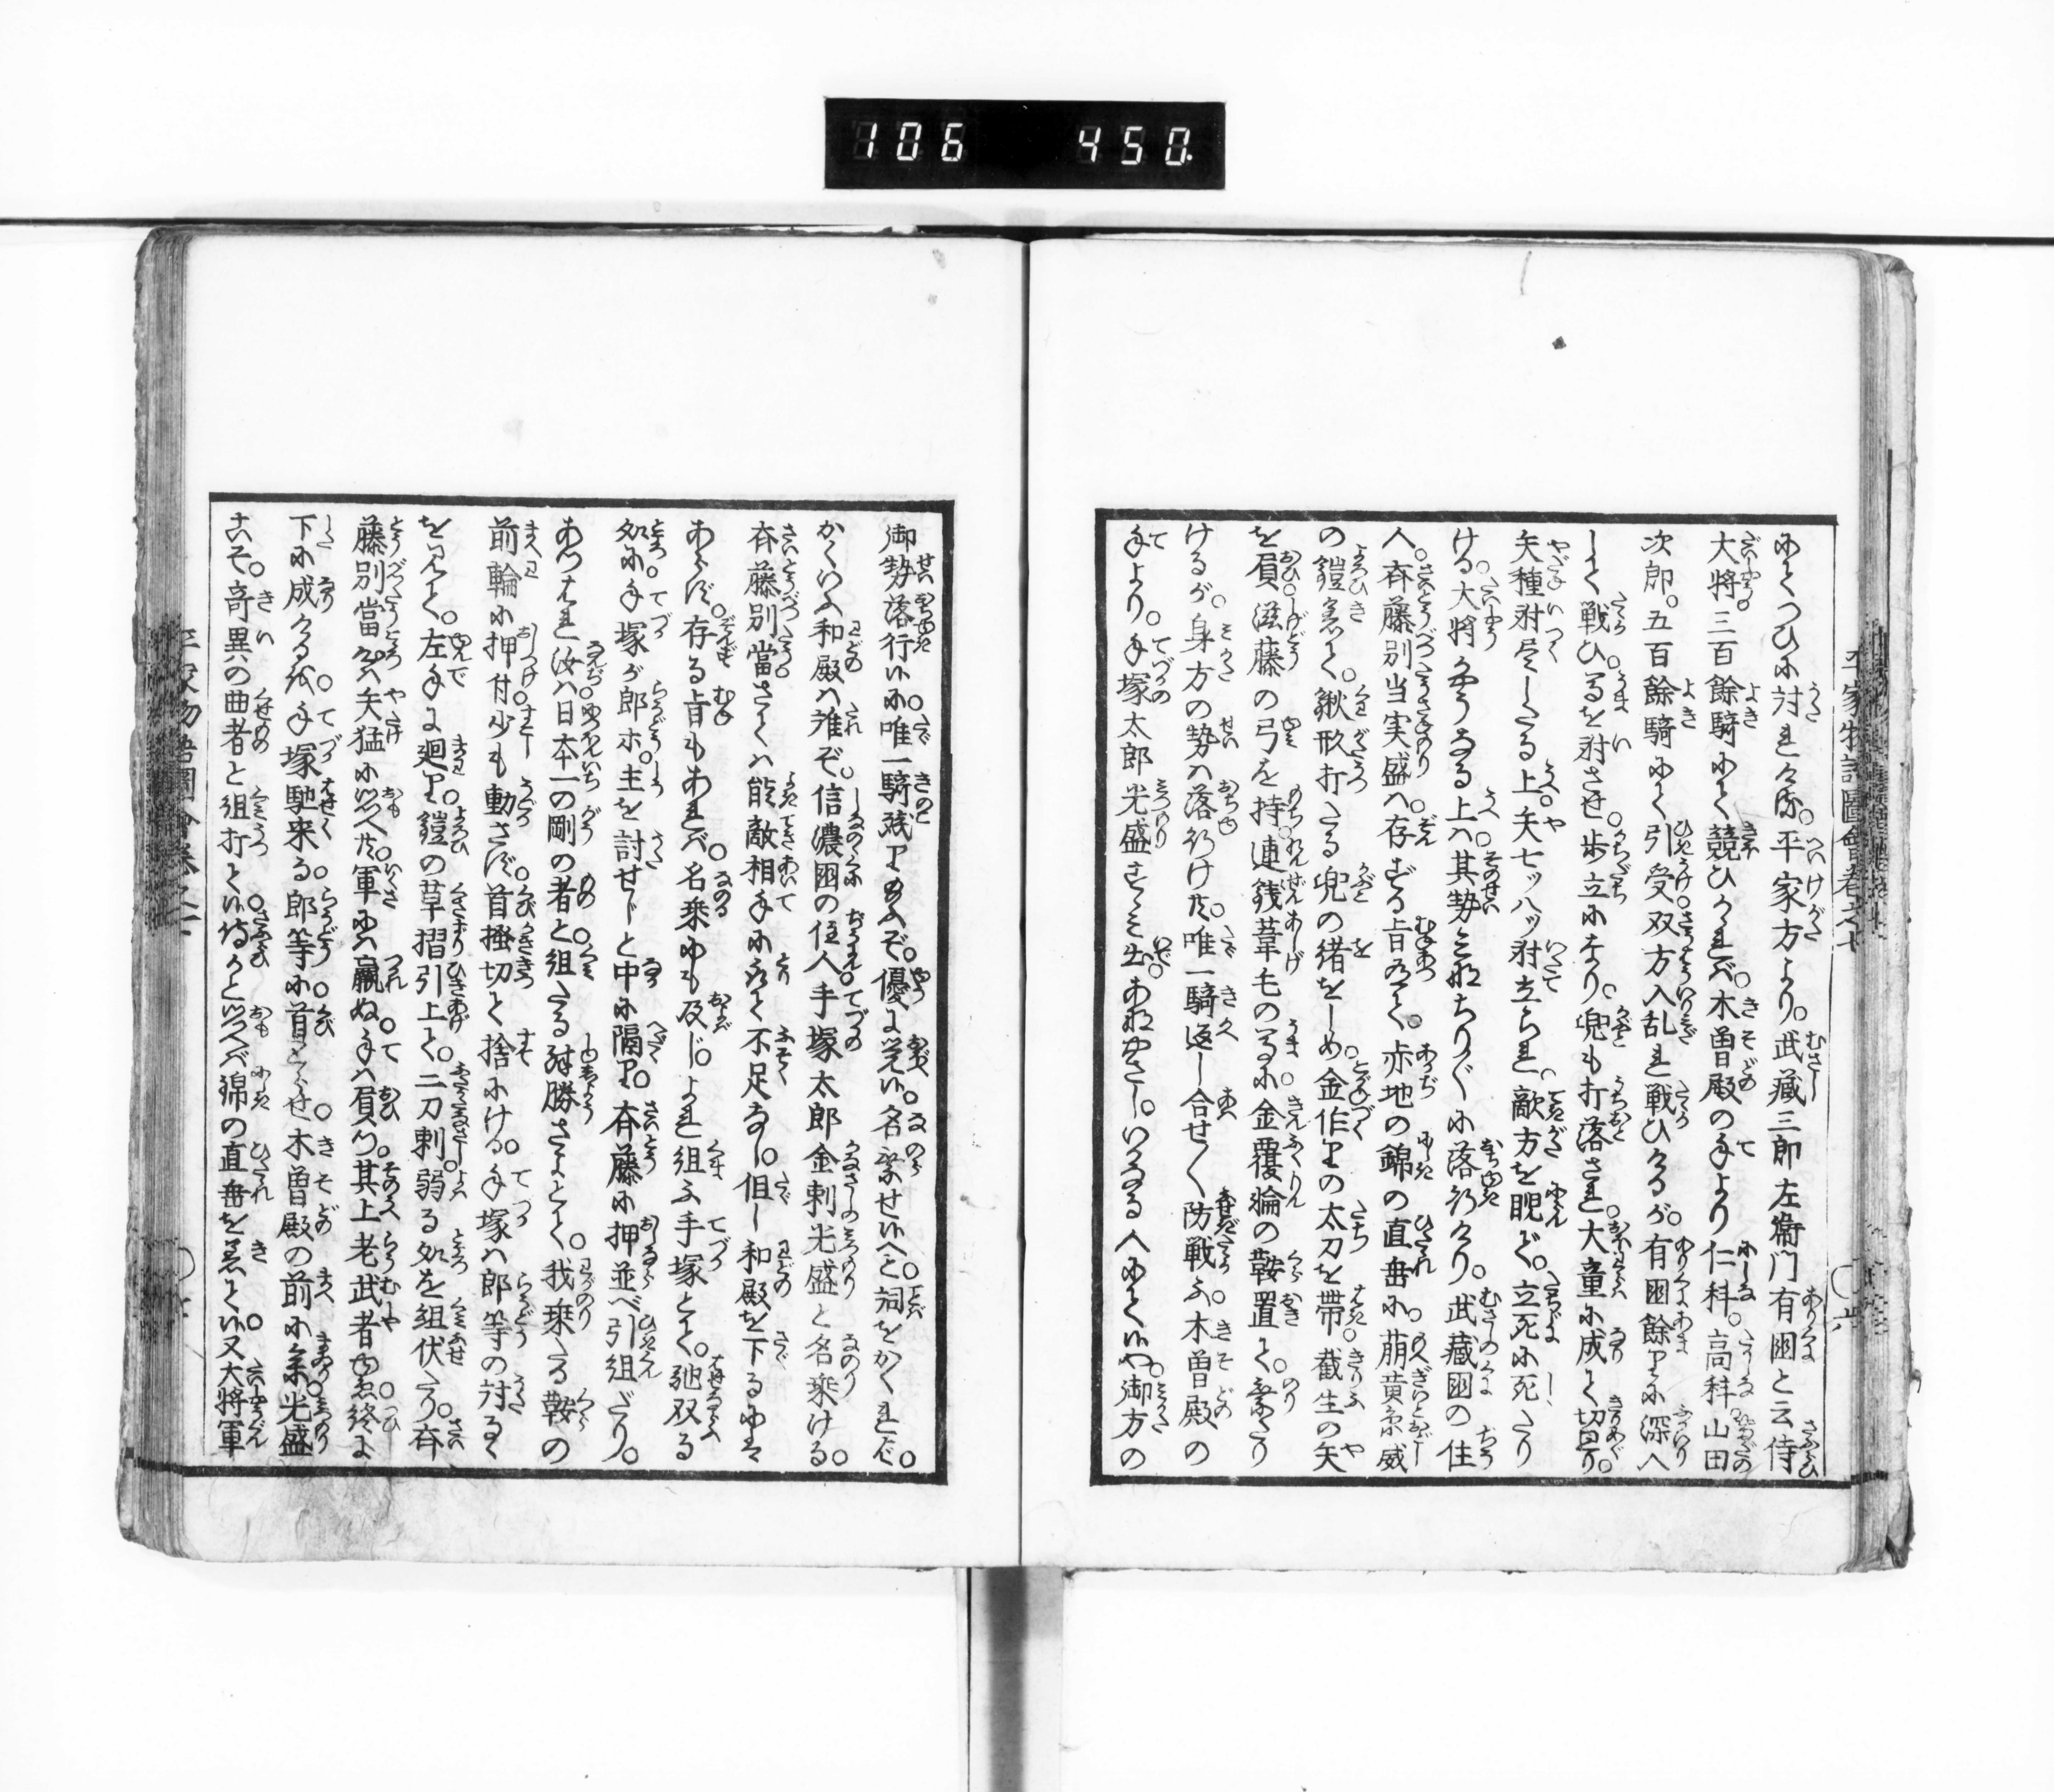 106 450.
平家物語圖會巻之七
〇六
にてつひに討れける。平家方より。武藏三郎左衛門有国と云侍
大将。三百餘騎にて競ひかゝれば。木曽殿の手より仁科。高科。山田
次郎。五百餘騎にて引受双方入乱れ戦ひけるが。有国餘りに深入
して戦ひ。馬を射させ。歩立になり。兜も打落され。大童に成て切廻り。
矢種射尽したる上。矢七ッ八ッ射立られ。敵方を睨で。立死に死たり
ける。大将かやうなる上は。其勢みなちり〴〵に落行けり。武藏国の住
人。斉藤別当実盛は。存ずる旨有て。赤地の錦の直垂に。萠黄糸威
の鎧着て。鍬形打たる兜の緒をしめ。金作りの太刀を帯。截生の矢
を屓。滋藤の弓を持。連銭葦毛の馬に。金覆輪の鞍置て。乗たり
けるが。身方の勢は落行けれ共。唯一騎返し合せ〳〵防戦ふ。木曽殿の
手より。手塚太郎光盛すゝみ出。あなやさし。いかなる人にて候や。御方の
御勢落行候に。唯一騎残り給ふぞ。優に覚候。名乗せ候へと詞をかくれば。
かくいふ和殿は誰ぞ。信濃国の住人手塚太郎金刺光盛と名乗ける。
斉藤別當。さては能敵相手に取て不足なし。但し和殿を下るにには
あらず。存る旨もあれば。名乗にも及じ。よれ組ふ手塚とて。馳双る
処に。手塚が郎等。主を討せじと中に隔り。斉藤に押並べ引組だり。
あつはれ汝は。日本一の剛の者と組たる殊勝さよとて。我乗たる鞍の
前輪に押付。少しも動さず。首掻切て捨にける。手塚は郎等の討るゝ
を見て。左手に廻り。鎧の草摺引上て。二刀刺。弱る処を組伏たり。斉
藤別當。心は矢猛に思へ共。軍には羸ぬ。手は屓つ。其上老武者ゆゑ。終に
下に成けるを。手塚馳来る。郎等に。首とらせ。木曽殿の前に参。光盛
こそ。奇異の曲者と組打て候。侍かと思へば錦の直垂を着て候。又大将軍
平家物語圖會巻之七